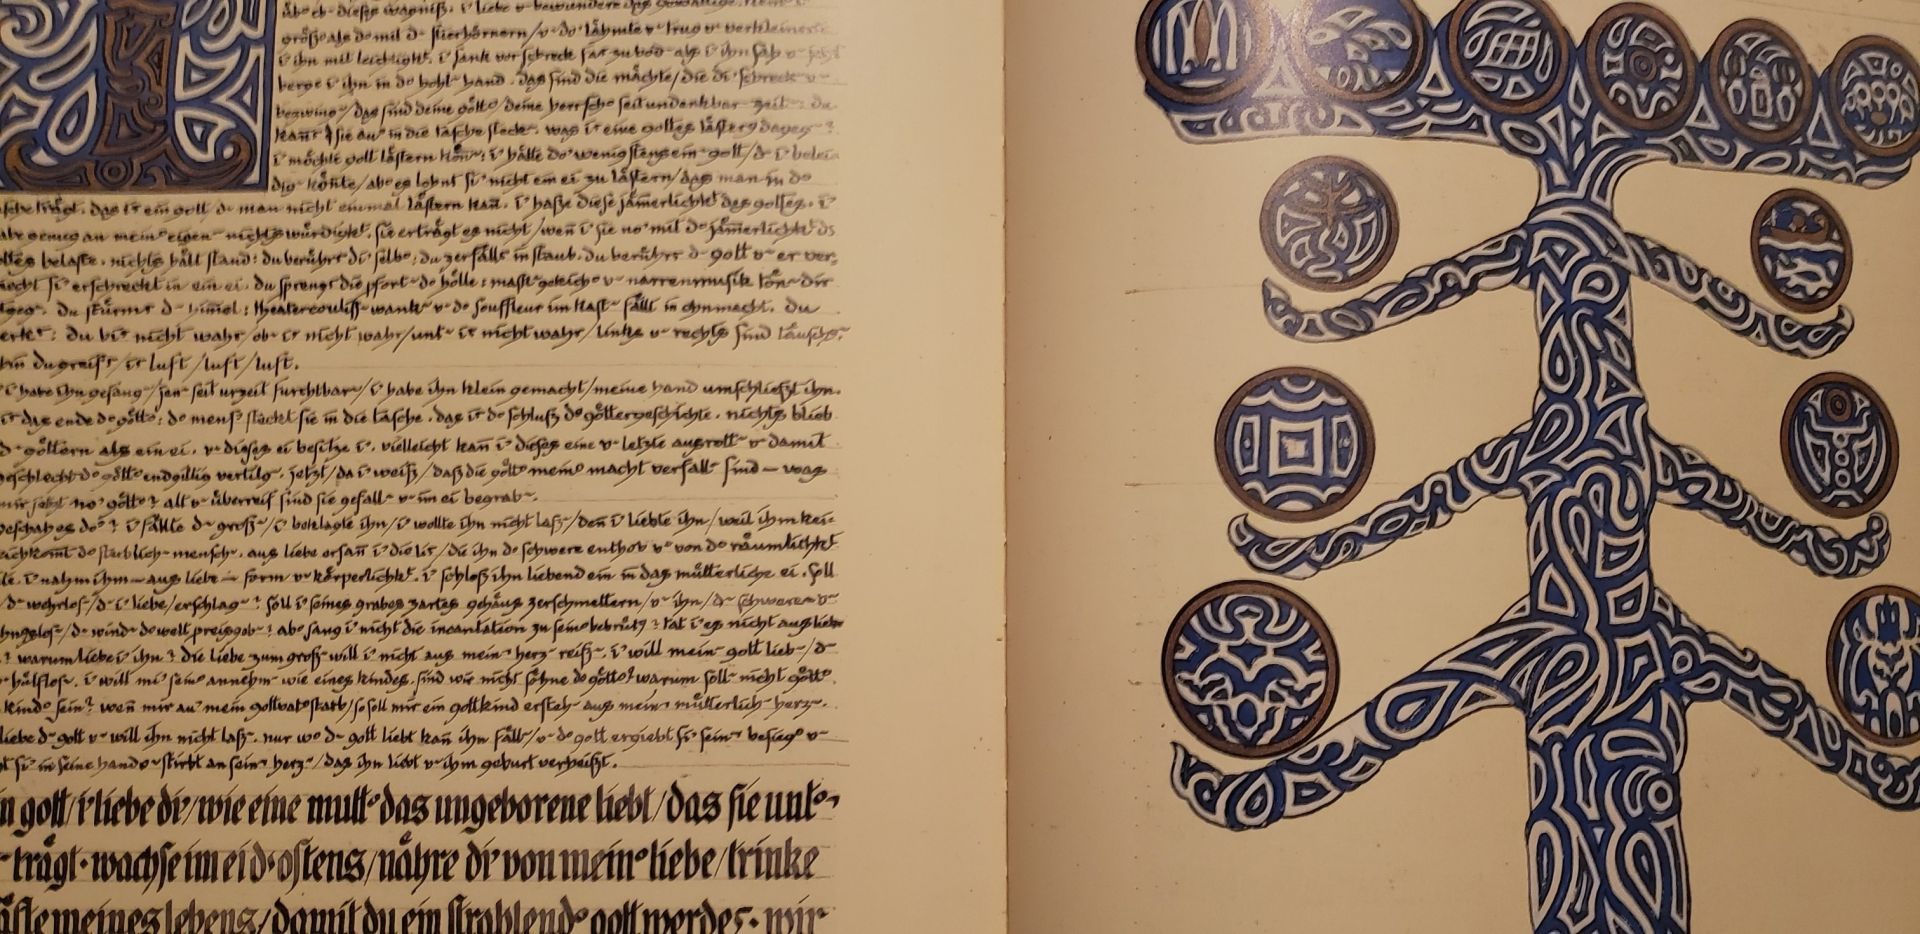 ābo eb dieses wagniß. i liebe v bewundere das gewaltige. kein i
größe als do mit d stierhörnern / v do lähmte v trug v verkleinerte
i ihn mit leichtigkt. i sank vor schreck fast zu bod als i ihn sah v jetzt
berge i ihn in do hohl hand. das sind die mächte / die di schreck v
bezwing / das sind deine gött / deine herrsch seit undenkbar zeit: du
kañt sie au in die tasche steck. was i eine gottes lästerg dageg ?
i möchte gott lästern kön: i hätte do wenigstens ein gott / d i belei
dig könte / abo es lohnt si nicht ein ei zu lästern / das man in do
tasche trägt. das i ein gott d man nicht einmal lästern kañ. i haße diese jāmerlichkt des gottes. i
habe genug an mein eigen nichtswürdigkt. sie erträgt es nicht / weñ i sie no mit do jāmerlichkt ds
gottes belaste. nichts hält stand: du berührs di selbo: du zerfälls in staub. du berührs d gott v er ver-
kriecht si erschreckt in ein ei. du sprengs die pforte do hölle: maskgekicho v narrenmusik tön dir
du stürms d himel: theatercouliss wank v do souffleur im kast fällt in ohnmacht. du
merks: du bis nicht wahr / ob i nicht wahr / unt is nicht wahr / links v rechts sind täuschg.
wohin du greifs / is luft / luft / luft.
i habe ihn gefang / jen seit urzeit furchtbar / i habe ihn klein gemacht / meine hand umschließt ihn.
is das ende do gött: do mensch steckt sie in die tasche. das is do schluß do göttergeschichte. nichts blieb
d göttern als ein ei. v dieses ei besitze i. vielleicht kañ i dieses eine v letzte ausrott v damit
geschlecht do gött endgiltig vertilg. jetzt / da i weiß / daß die gött meino macht verfall sind — was
mir jetzt no gött ? alt v überreif sind sie gefall v im ei begrab.
geschah es do ? i fällte d groß / i beklagte ihn / i wollte ihn nicht laß / deñ i liebte ihn / weil ihm kei-
gleichkomt do sterblich mensch. aus liebe ersañ i die list / die ihn do schwere enthob v von do räumlichkt
i nahm ihm — aus liebe — form v körperlichkt. i schloß ihn liebend ein in das mütterliche ei. soll
/ d wehrlos / d i liebe / erschlag ? soll i seines grabes zartes gehäus zerschmettern / v ihn / d schwere v
/ d wind do welt preisgeb ? abo sang i nicht die incantation zu seino bebrütg ? tat i es nicht aus liebe
? warum liebe i ihn ? die liebe zum groß will i nicht aus mein herz reiß. i will mein gott lieb / d
hülflos. i will mi seino annehm wie eines kindes. sind wir nicht söhne do gött ? warum soll nicht gött
kindo sein ? weñ mir au mein gottvat starb / so soll mir ein gottkind ersteh aus mein mütterlich herz.
liebe d gott v will ihn nicht laß. nur wo d gott liebt kañ ihn fäll / v do gott ergiebt si sein besiego v
si in seine hand v stirbt an sein herz / das ihn liebt v ihm geburt verheißt.
mein gott / i liebe di / wie eine mutt das ungeborene liebt / das sie unt
trägt · wachse im ei d · ostens / nähre di von mein liebe / trinke
säfte meines lebens / damit du ein strahlend gott werdes · wir